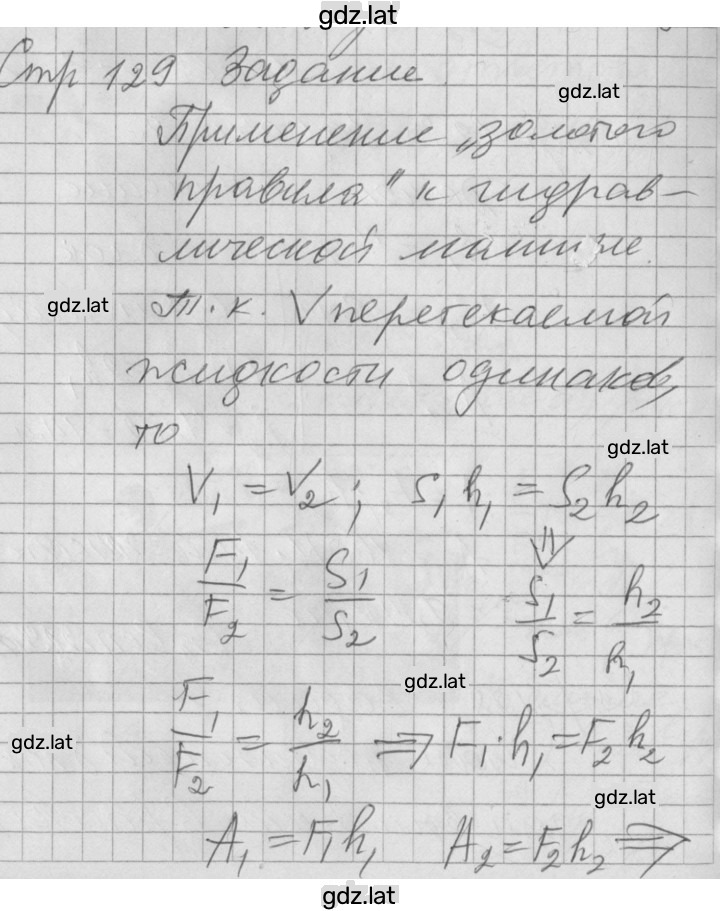 gdz.lat
Стр 129 Задание.
gdz.lat
Применение „золотого
правила" к гидрав-
лической машине.
gdz.lat
Т. к. V перетекаемой
жидкости одинаков,
то
gdz.lat
V₁ = V₂ ; S₁ h₁ = S₂ h₂
⇓
F₁/F₂ = S₁/S₂ S₁/S₂ = h₂/h₁
gdz.lat
F₁/F₂ = h₂/h₁ ⇒ F₁ · h₁ = F₂ h₂
gdz.lat
gdz.lat
A₁ = F₁ h₁ A₂ = F₂ h₂ ⇒
gdz.lat